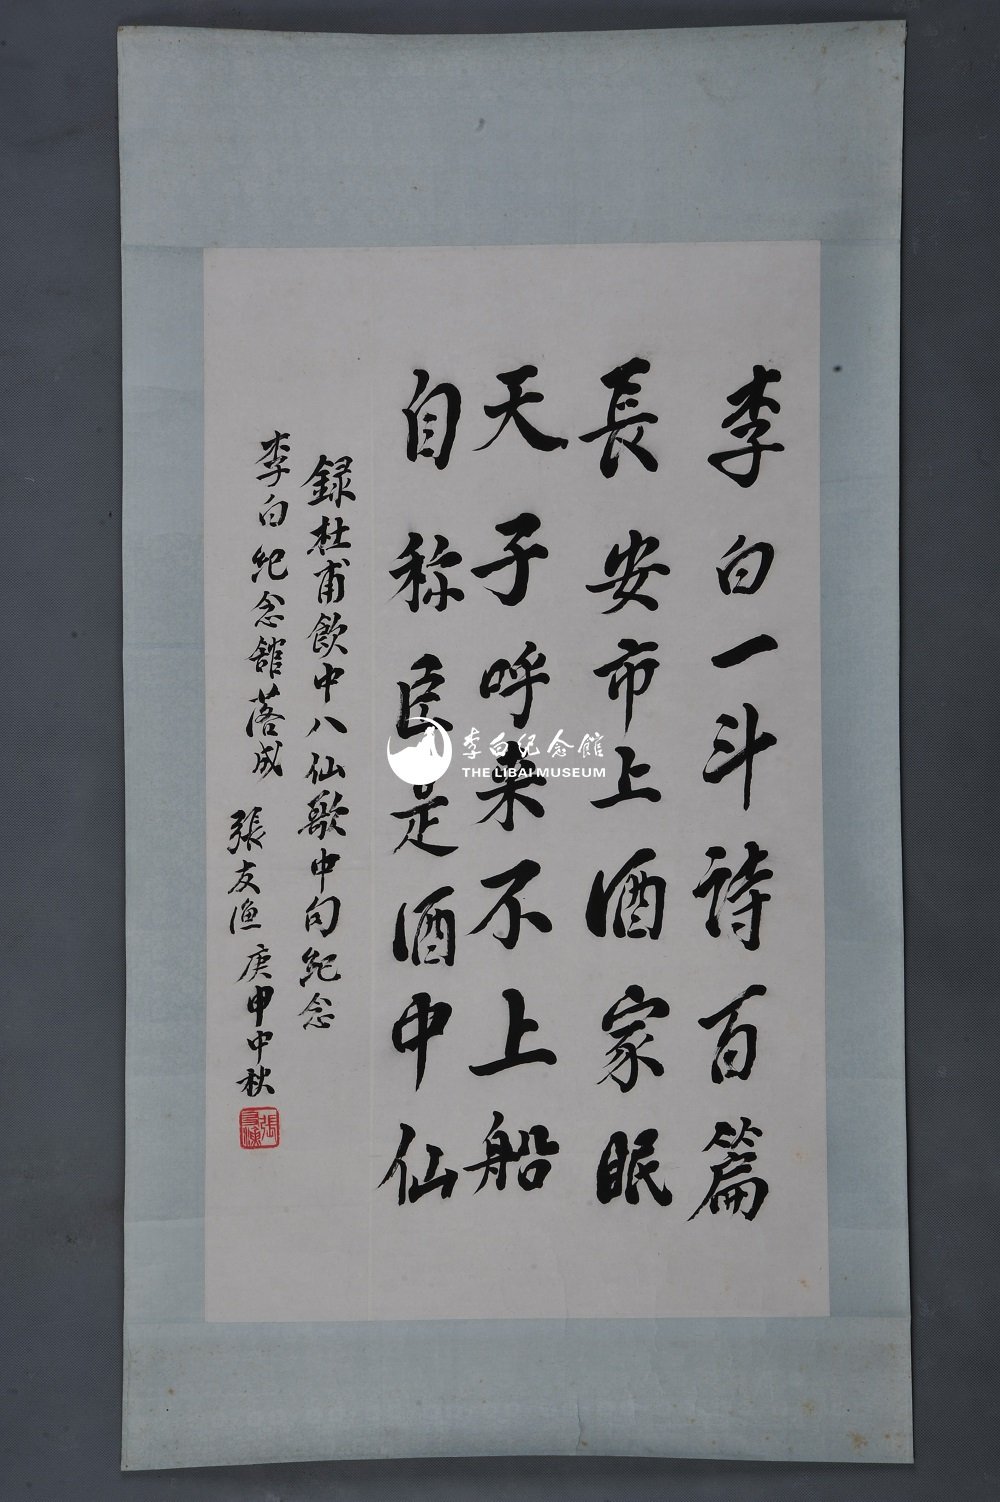 李白一斗詩百篇
長安市上酒家眠
天子呼来不上船
自称臣是酒中仙
録杜甫飲中八仙歌中句紀念
李白紀念舘落成
張友漁 庚申中秋
張友漁
李白纪念館
THE LIBAI MUSEUM